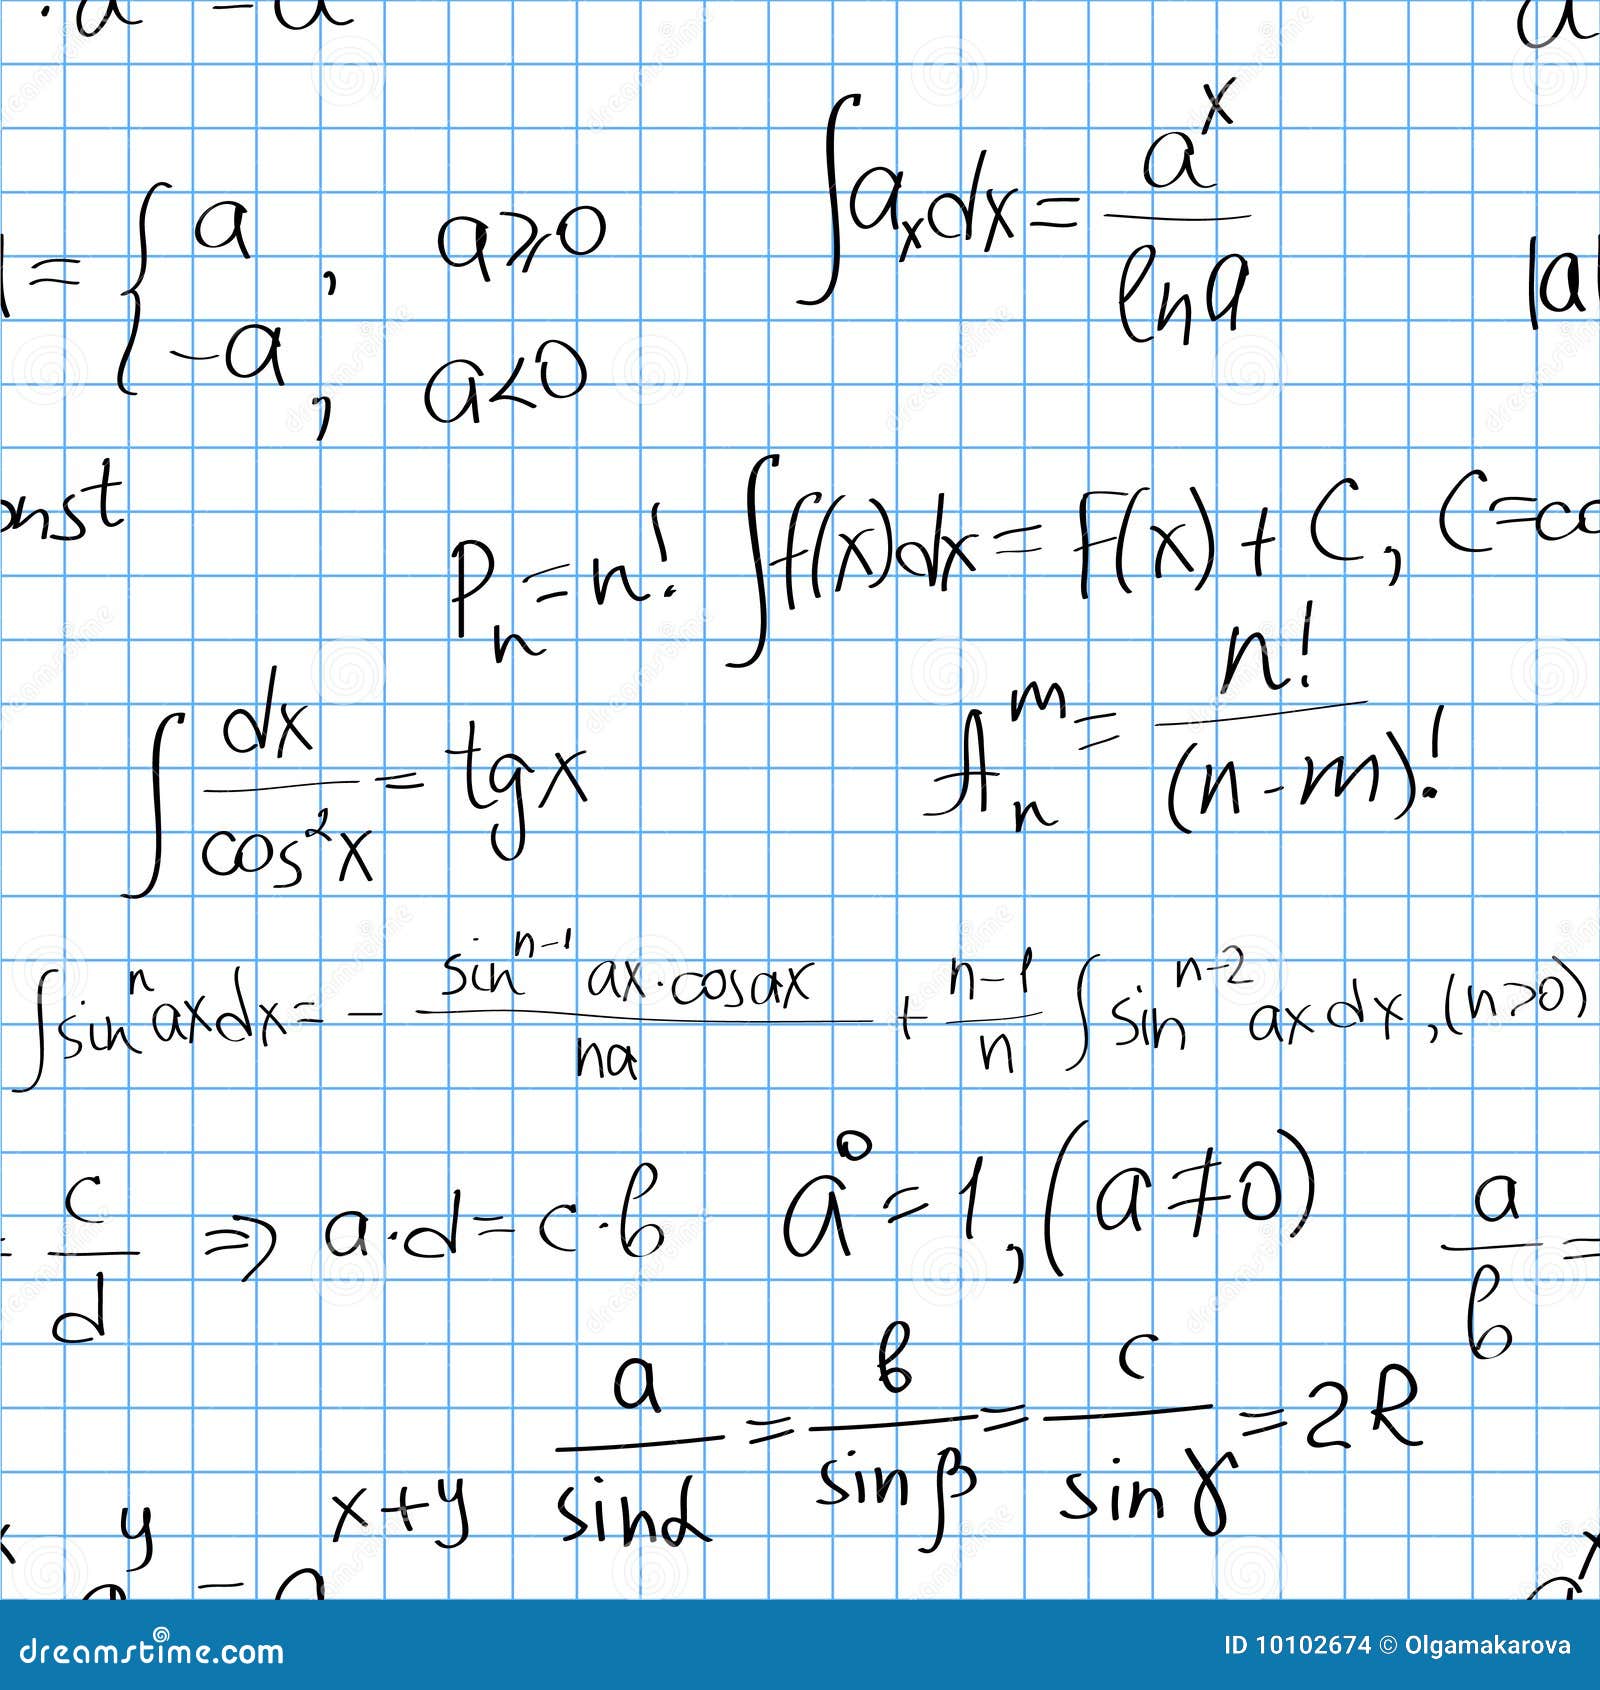 · a = a a
∫ a_x dx = a^x / ln a
| = { a , a ⩾ 0 |a|
-a , a < 0
onst P_n = n! ∫ f(x) dx = F(x) + C, C = co
∫ dx / cos² x = tg x A_n^m = n! / (n-m)!
∫ sin^n ax dx = - sin^(n-1) ax · cos ax / na + n-1 / n ∫ sin^(n-2) ax dx, (n>0)
= c / d ⇒ a · d = c · b a⁰ = 1, (a ≠ 0) a / b =
a / sin α = b / sin β = c / sin γ = 2R
x y x+y x
a = a a
dreamstime.com ID 10102674 © Olgamakarova